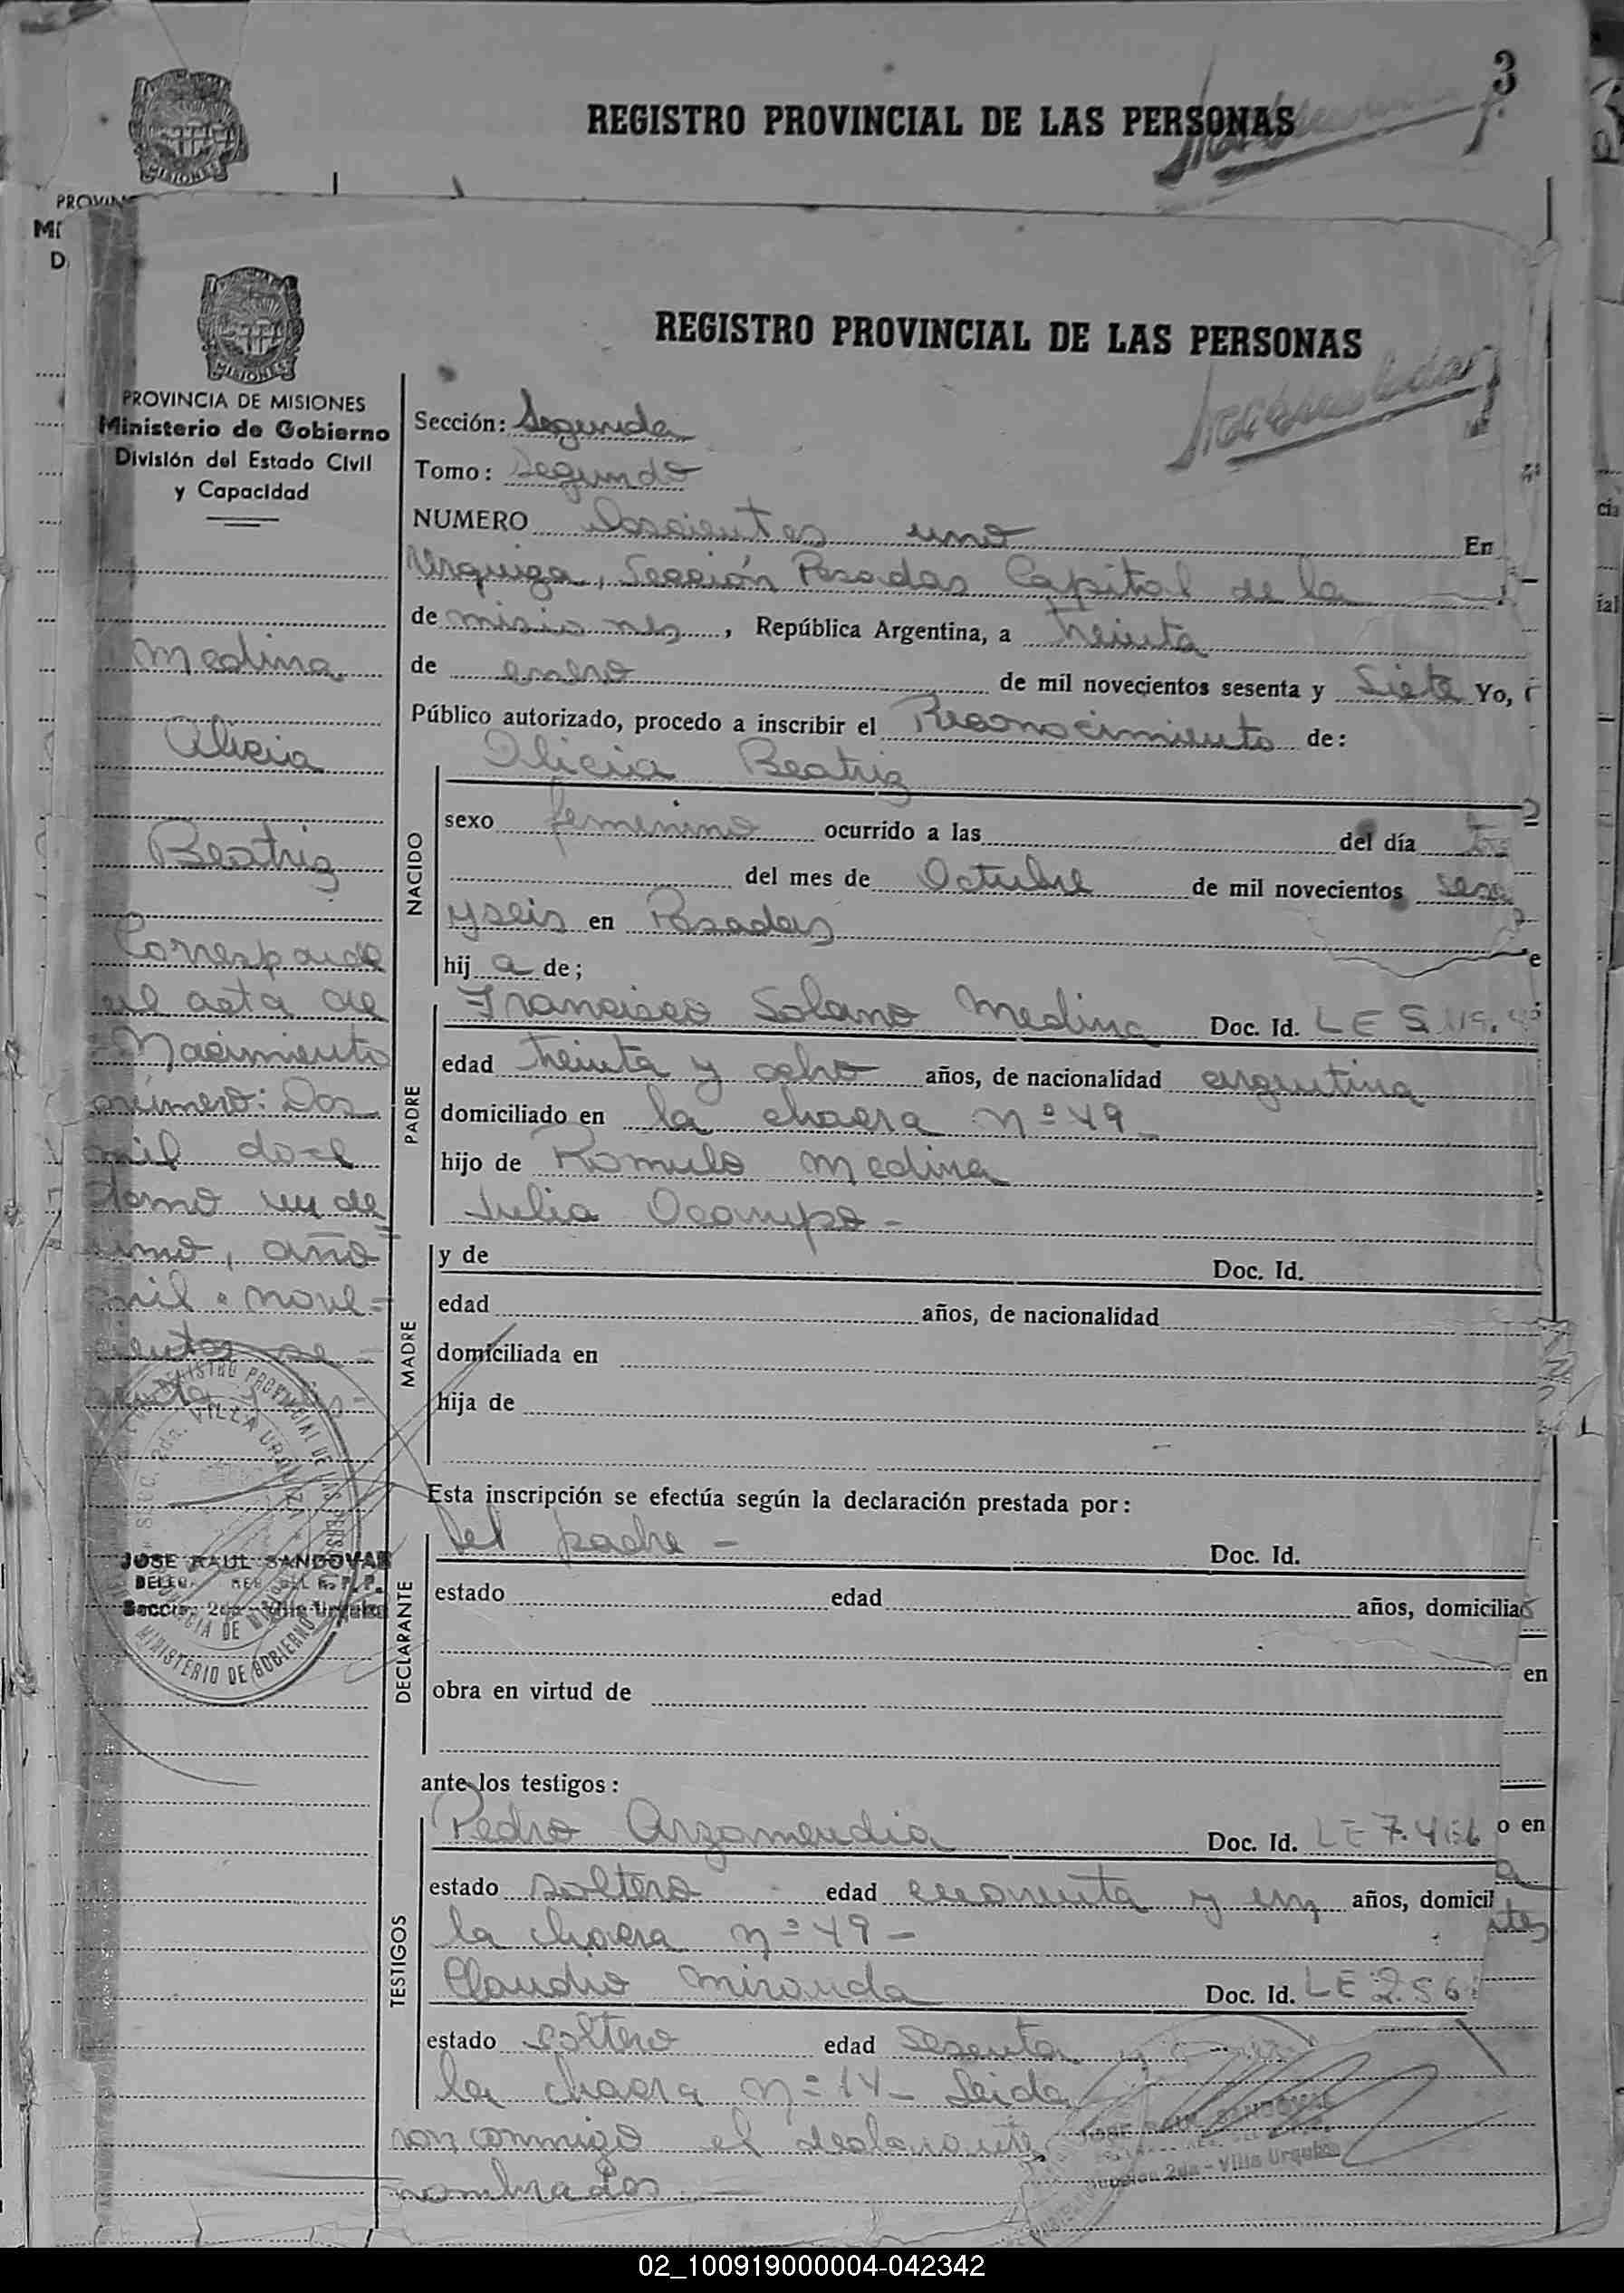 3
REGISTRO PROVINCIAL DE LAS PERSONAS
MISIONES
REGISTRO PROVINCIAL DE LAS PERSONAS
MISIONES
PROVINCIA DE MISIONES
Ministerio de Gobierno
División del Estado Civil
y Capacidad
Medina
Alicia
Beatriz
Corresponde
el acta de
Nacimiento
número: Dos
mil doce
tomo un de
uno, año
mil nove=
cientos se-
JOSE RAUL SANDOVAL
Sección 2da - Villa Urquiza
Sección: Segunda
Tomo: Segundo
NUMERO Doscientos uno En
Urquiza, Sección Posadas Capital de la
de misiones, República Argentina, a treinta
de enero de mil novecientos sesenta y Siete Yo,
Público autorizado, procedo a inscribir el Reconocimiento de:
Alicia Beatriz
NACIDO
sexo femenino ocurrido a las del día
del mes de Octubre de mil novecientos
y seis en Posadas
hij a de;
PADRE
Francisco Solano Medina Doc. Id. L E 5.119.
edad treinta y ocho años, de nacionalidad argentina
domiciliado en la chacra nº 49-
hijo de Romulo Medina
Julia Ocampo -
MADRE
y de Doc. Id.
edad años, de nacionalidad
domiciliada en
hija de
Esta inscripción se efectúa según la declaración prestada por:
DECLARANTE
del padre - Doc. Id.
estado edad años, domicilia
en
obra en virtud de
ante los testigos:
TESTIGOS
Pedro Arzamendia Doc. Id. LE 7.456 o en
estado soltero edad cuarenta y un años, domicil
la chacra nº 49 -
Claudio Miranda Doc. Id. LE 2.56
estado soltero edad sesenta y
la chacra nº 14 - Leida
ron conmigo el declarante
nombrados -
Sección 2da - Villa Urquiza
02_100919000004-042342